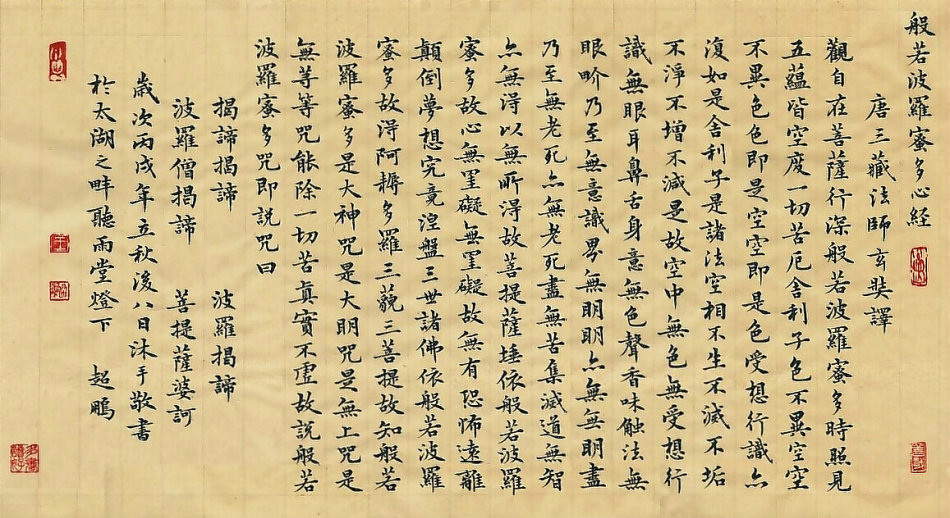 般若波羅蜜多心經
唐三藏法師玄奘譯
觀自在菩薩行深般若波羅蜜多時照見
五蘊皆空度一切苦厄舍利子色不異空空
不異色色即是空空即是色受想行識亦
復如是舍利子是諸法空相不生不滅不垢
不淨不增不減是故空中無色無受想行
識無眼耳鼻舌身意無色聲香味觸法無
眼畍乃至無意識界無明明亦無無明盡
乃至無老死亦無老死盡無苦集滅道無智
亦無得以無所得故菩提薩埵依般若波羅
蜜多故心無罣礙無罣礙故無有恐怖遠離
顛倒夢想究竟涅盤三世諸佛依般若波羅
蜜多故得阿耨多羅三藐三菩提故知般若
波羅蜜多是大神咒是大明咒是無上咒是
無等等咒能除一切苦真實不虛故說般若
波羅蜜多咒即說咒曰
揭諦揭諦 波羅揭諦
波羅僧揭諦 菩提薩婆訶
歲次丙戌年立秋後八日沐手敬書
於太湖之畔聽雨堂燈下 超鵬